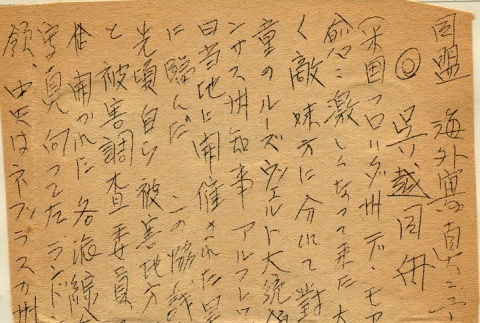 同盟 海外写真ニュー
◎ 呉越同舟
(米国フロリダ州 デ・モア
愈々激しくなって来た大
く敵味方に分れて対
のルーズヴェルト大統領
ンサス州知事 アルフレッ
日当地に開催された旱
に臨んだ この協議
先頃自ら被害地方
と被害調査委員
開かれた 各派
写真向って左 ランド
領、中央はネブラスカ州